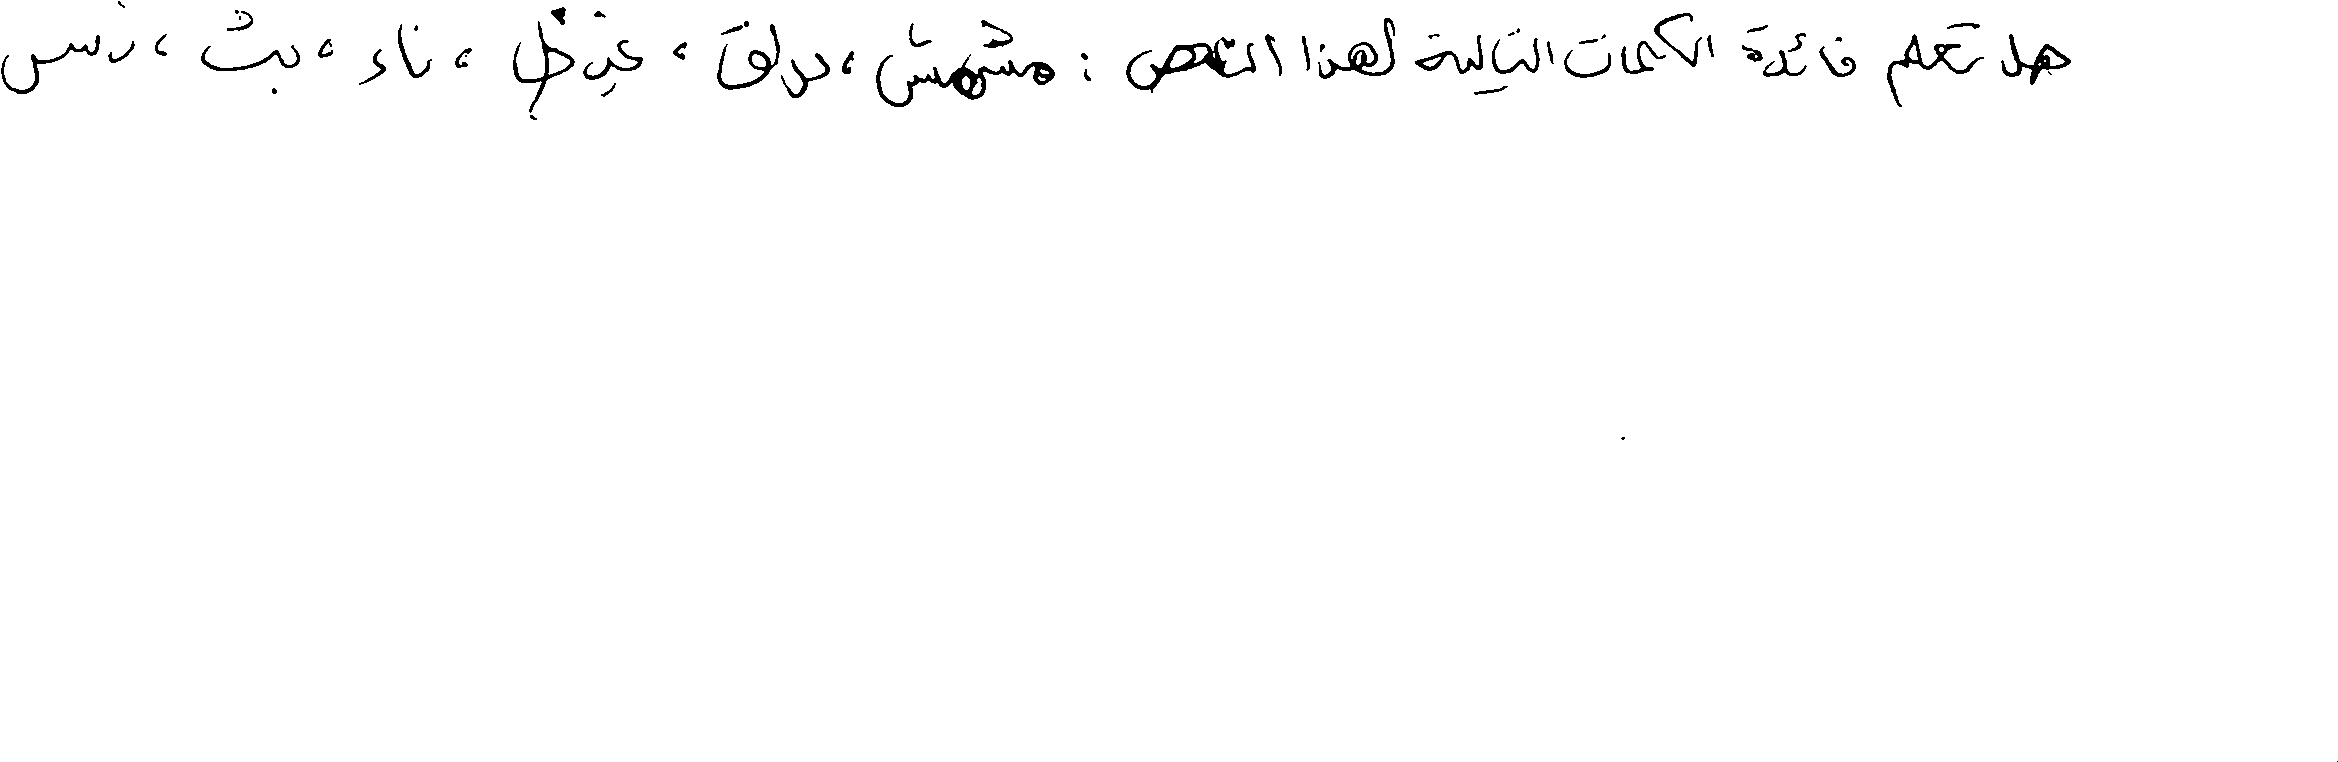 هل تعلم فائدة الكلمات التالية لهذا النص : مشمش، دلق، ، ناء، بث، نسس